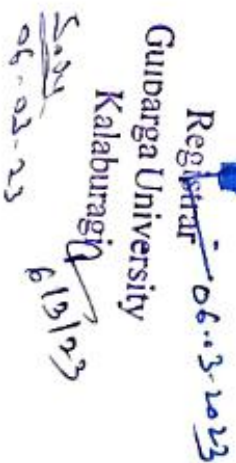 Registrar 06..3-2023
Gulbarga University
Kalaburagi
6/3/23
06-03-23